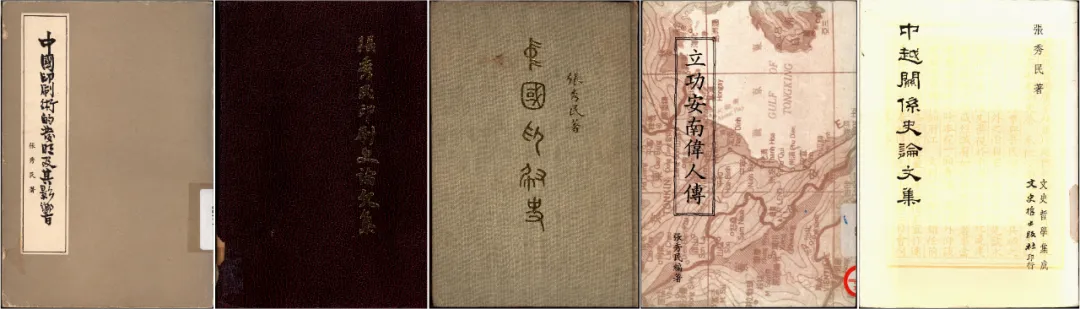 中國印刷術的發明及其影響
張秀民著
張秀民印刷史論文集
中國印刷史
張秀民著
立功安南偉人傳
張秀民編著
GULF OF
TONGKING
張秀民著
中越關係史論文集
文史哲學集成
文史哲出版社印行